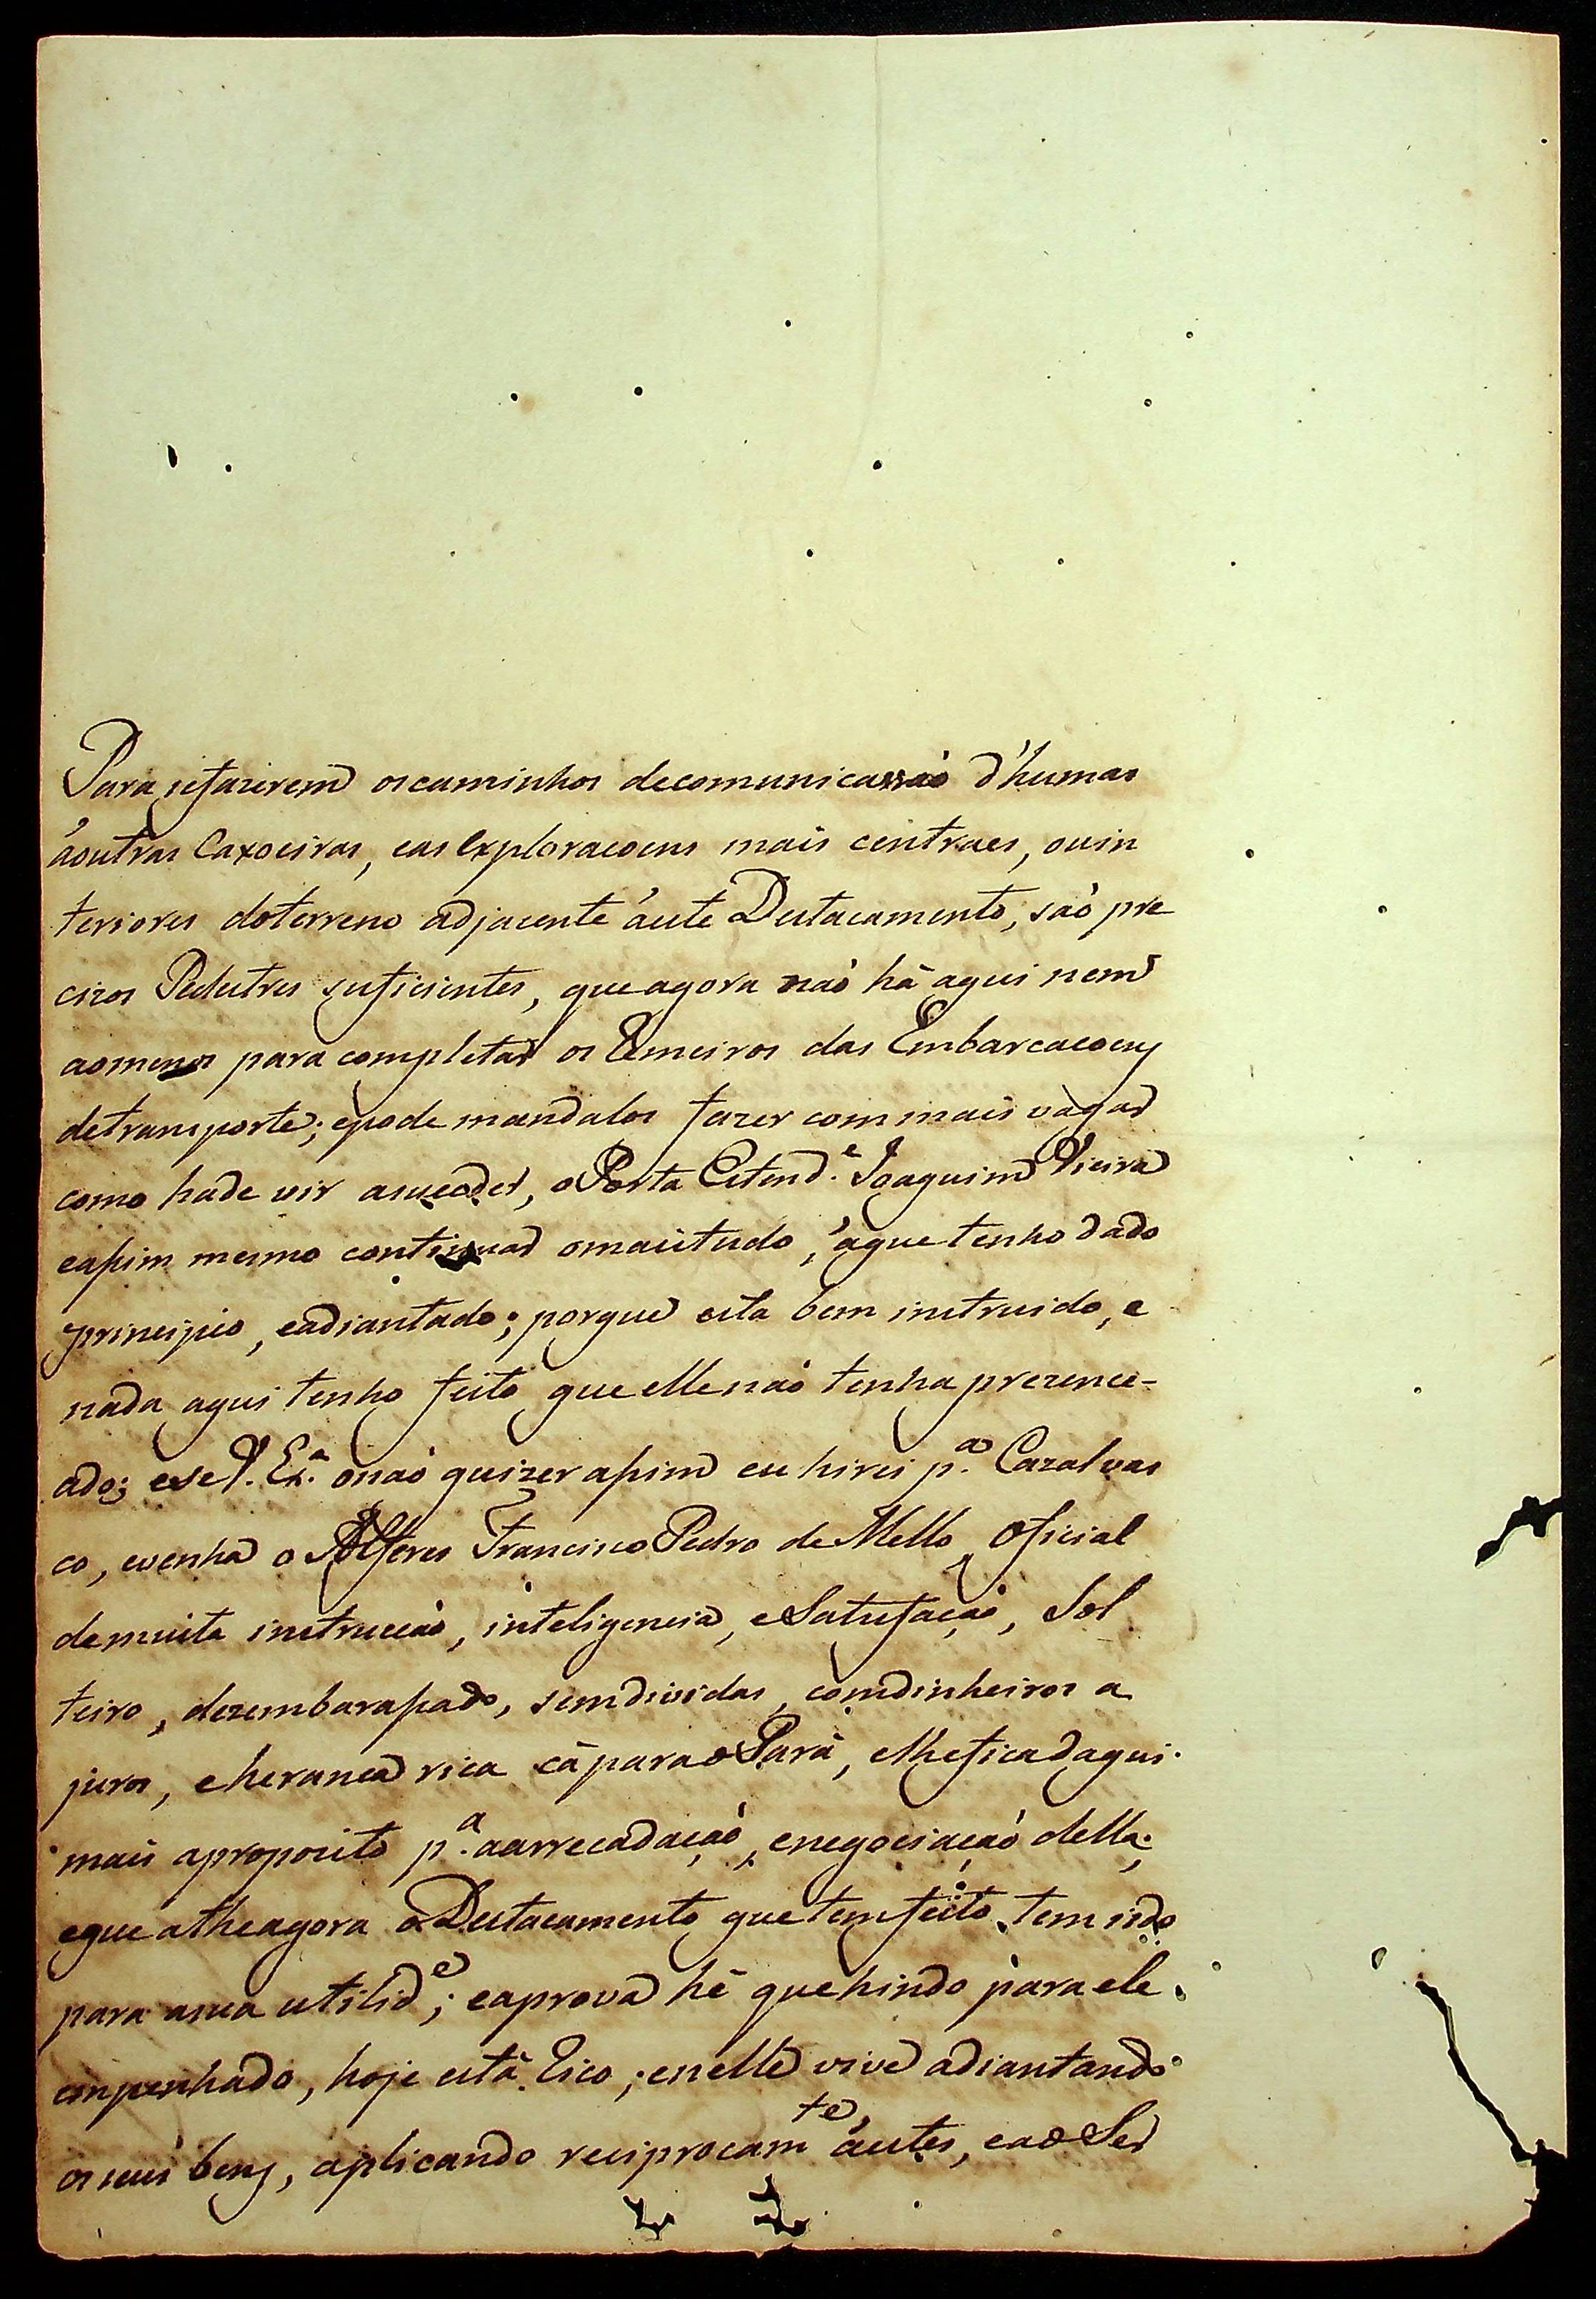 Para sefazerem oscaminhos decomunicassaõ d'humas
áoutras Caxoeiras, eas Exploracoens mais centraes, ouin
teriores doterreno adjacente áeste Destacamento, saõ pre
cizos Pedestres suficientes, queagora naõ hâ aqui nem
aomenos para completar os Remeiros das Embarcacoens
detransporte; epode mandalos fazer commais vagar
como hade vir asuceder, oPorta Estend.e Joaquim Vieira
eassim mesmo continuar omaistudo, áque tenho dado
principio, eadiantado; porque esta bem instruido, e
nada aqui tenho feito que ellenaõ tenha prezenci-
ado; ese V. Ex.a onaõ quizer assim eu hirei p.a Cazalvas
co, evenha o Alferes Francisco Pedro de Mello, Oficial
demuita instruccaõ, inteligencia, eSatisfaçaõ, Sol
teiro, dezembarassado, semdividas, comdinheiros a
juros, eherança rica cáparao Pará, elhefica daqui
mais aproposito p.a aarrecadaçaõ, enegociaçaõ della;
eque atheagora oDestacamento quetemfeito, tem sido
para asua utilid.e; eaprova hê quehindo para ele
empenhado, hoje está Rico; enelle vive adiantando
os seus bens, aplicando reciprocam.te áestes, eao Ser